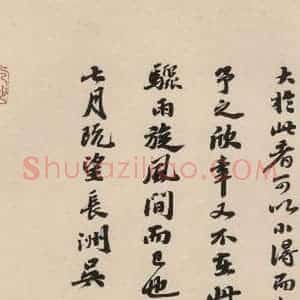 大於此者可以小得而
予之欣幸又不在此
驟雨旋風間而已也
七月既望長洲吳
Shufaziliao.com